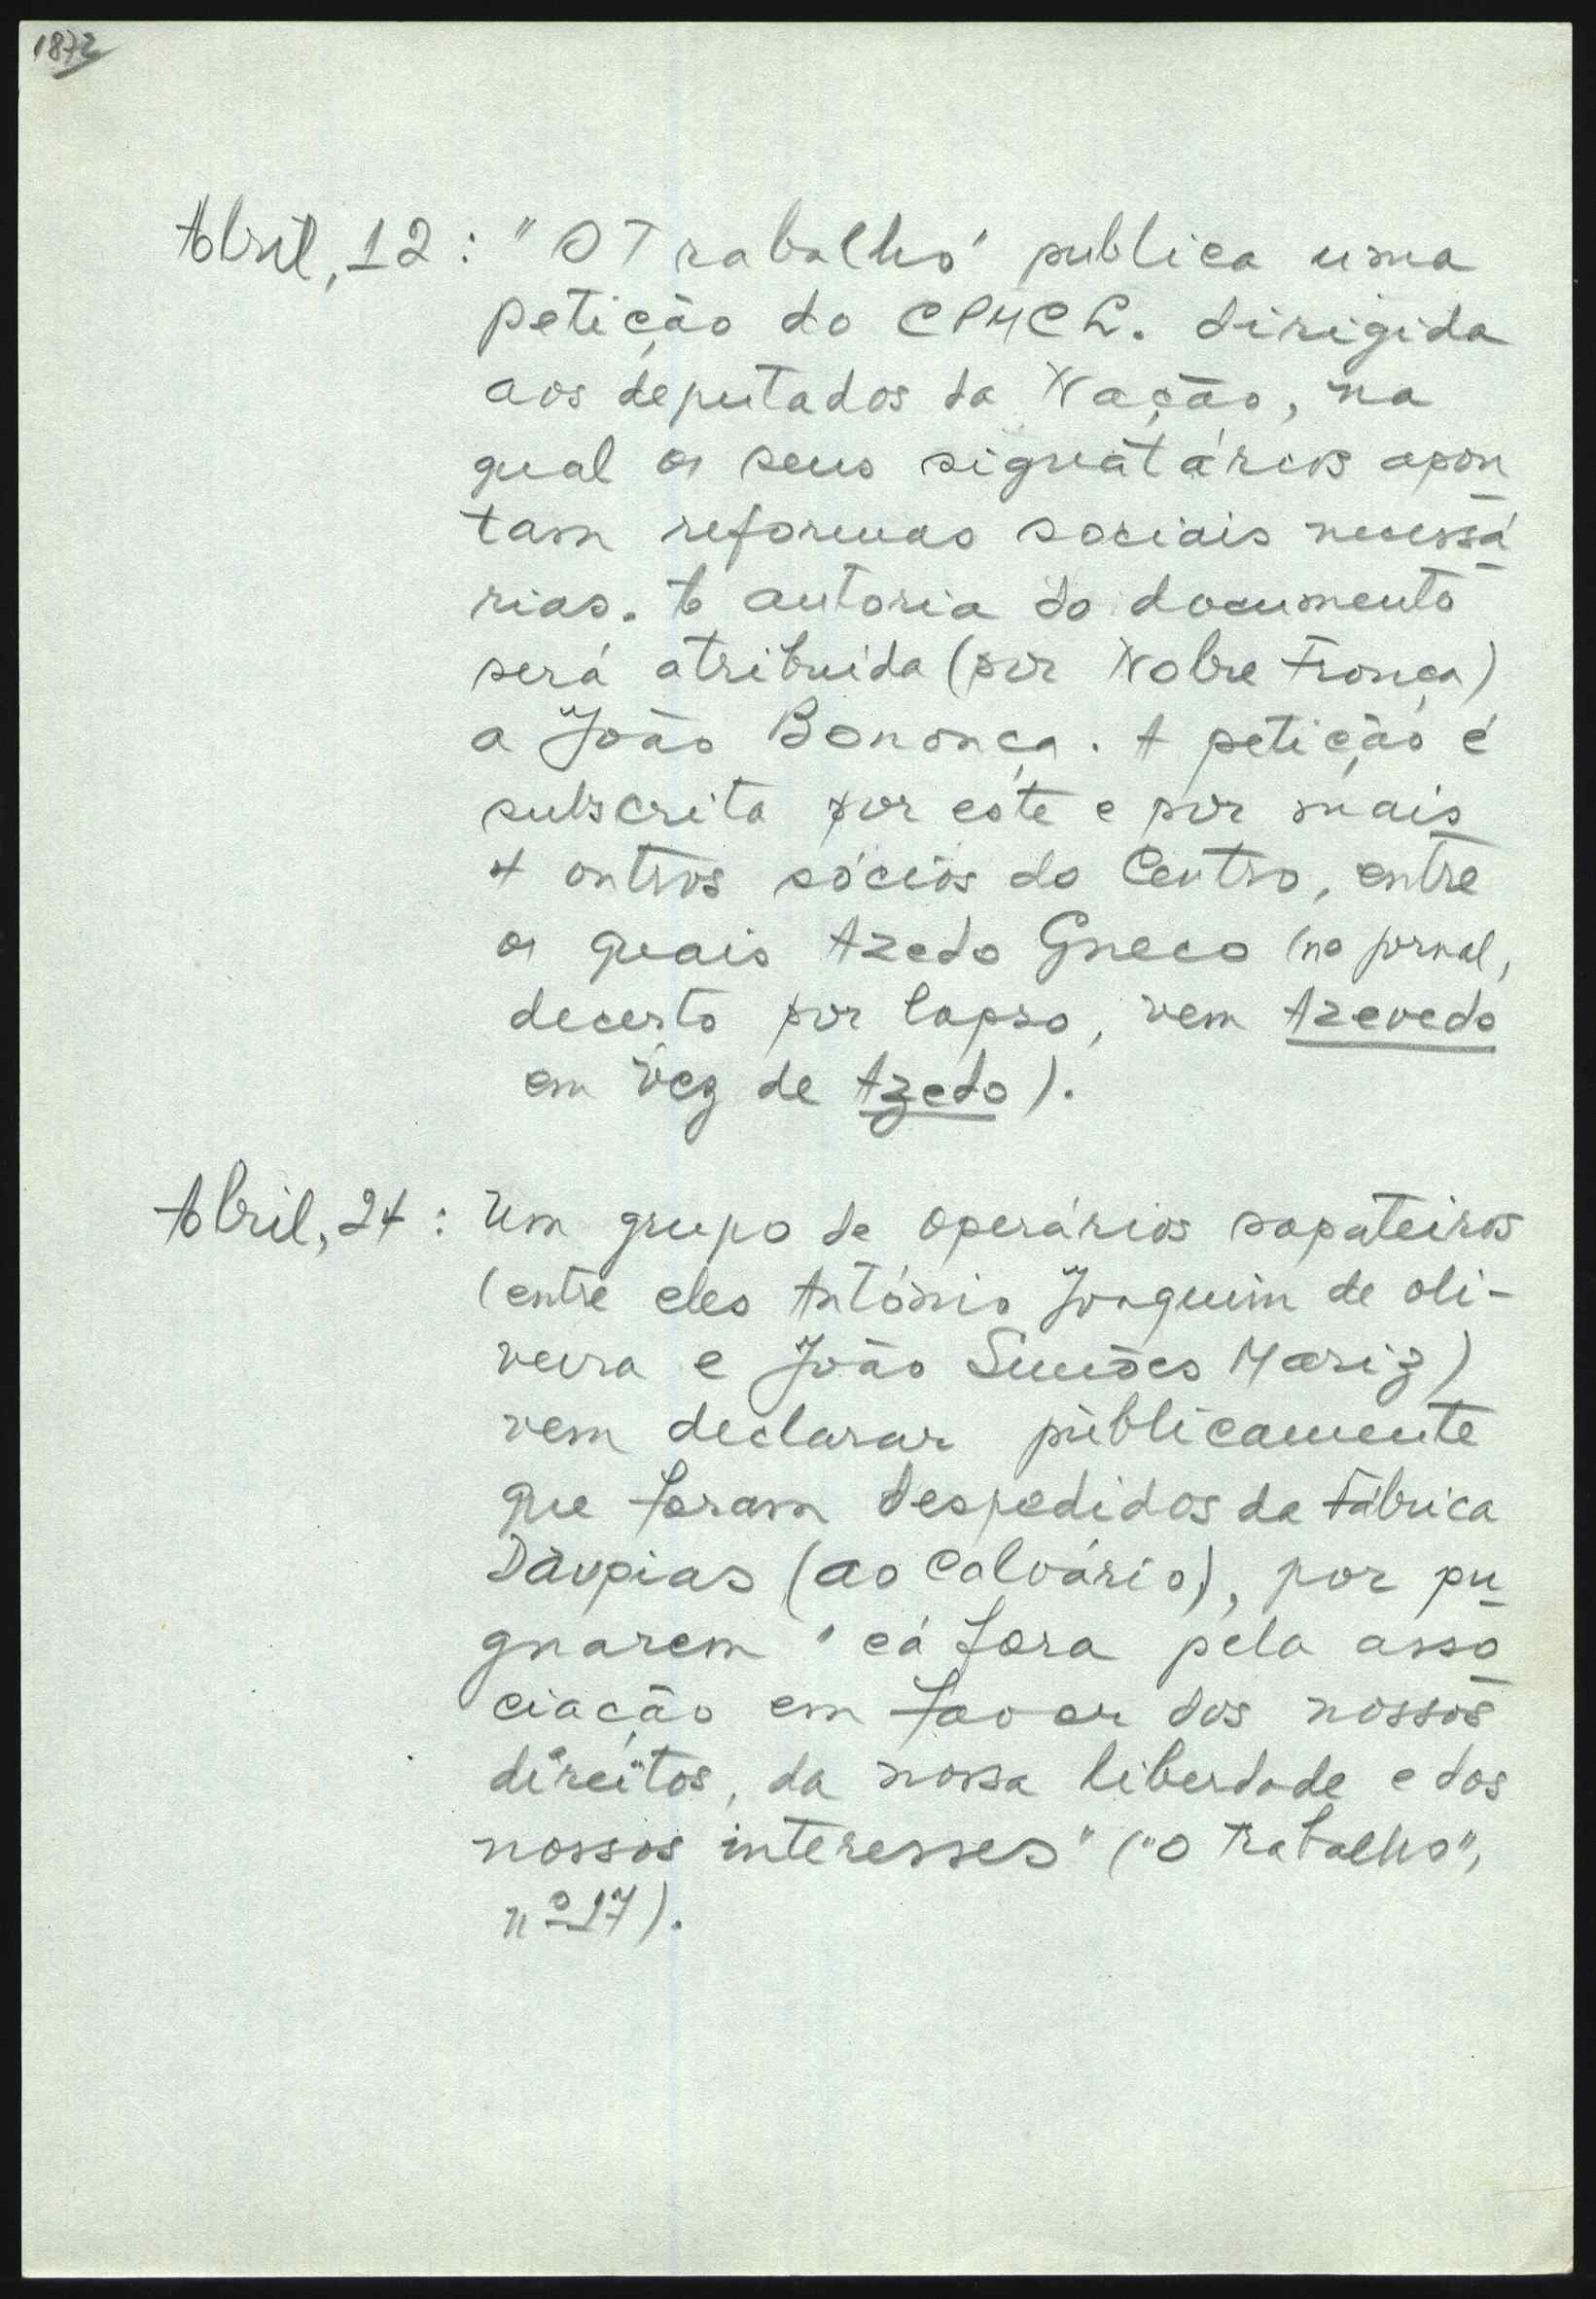 1872
Abril, 12: "O Trabalho" publica uma
petição do CPMCL. dirigida
aos deputados da Nação, na
qual os seus signatários apon
tam reformas sociais necessá
rias. A autoria do documento
será atribuida (por Nobre França)
a João Bonança. A petição é
subscrita por este e por mais
4 outros sócios do Centro, entre
os quais Azedo Gneco (no jornal,
decerto por lapso, vem Azevedo
em vez de Azedo).
Abril, 24: Um grupo de operários sapateiros
(entre eles António Joaquim de Oli-
veira e João Simões Mariz)
vem declarar pùblicamente
que foram despedidos da Fábrica
Daupias (ao Calvário), por pu
gnarem "cá fora pela asso
ciação em favor dos nossos
direitos, da nossa liberdade e dos
nossos interesses" ("O Trabalho",
nº 17).